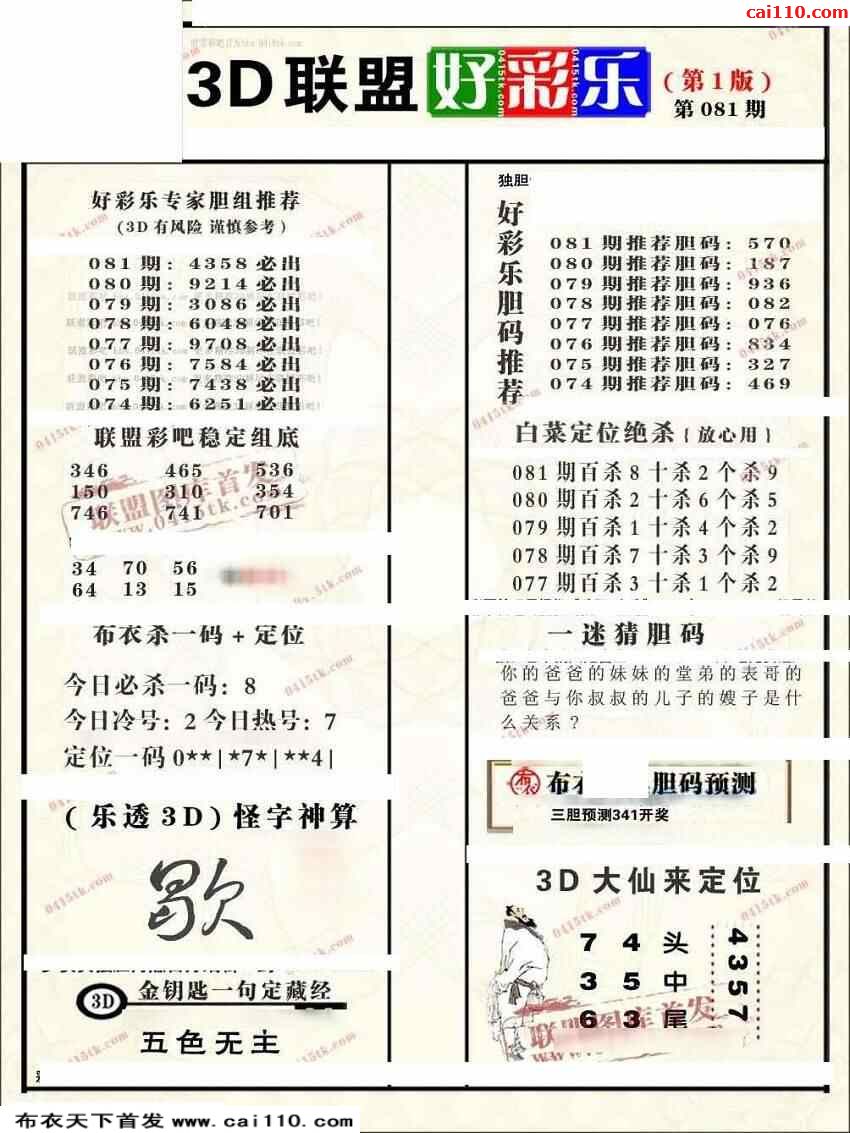 cai110.com
3D联盟 好彩乐 (第1版)
第081期
好彩乐专家胆组推荐
(3D有风险 谨慎参考)
081期: 4358必出
080期: 9214必出
079期: 3086必出
078期: 6048必出
077期: 9708必出
076期: 7584必出
075期: 7438必出
074期: 6251必出
联盟彩吧稳定组底
346 465 536
150 310 354
746 741 701
联盟图库首发
www.0415tk.com
34 70 56
64 13 15
布衣杀一码+定位
今日必杀一码: 8
今日冷号: 2 今日热号: 7
定位一码 0**|*7*|**4|
(乐透3D) 怪字神算
歇
3D 金钥匙一句定藏经
五色无主
独胆
好彩乐胆码推荐
081期推荐胆码: 570
080期推荐胆码: 187
079期推荐胆码: 936
078期推荐胆码: 082
077期推荐胆码: 076
076期推荐胆码: 834
075期推荐胆码: 327
074期推荐胆码: 469
白菜定位绝杀{放心用}
081期百杀8十杀2个杀9
080期百杀2十杀6个杀5
079期百杀1十杀4个杀2
078期百杀7十杀3个杀9
077期百杀3十杀1个杀2
一迷猜胆码
你的爸爸的妹妹的堂弟的表哥的
爸爸与你叔叔的儿子的嫂子是什
么关系?
布衣 布衣 胆码预测
三胆预测341开奖
3D大仙来定位
7 4 头
3 5 中
6 3 尾
4357
联盟图库首发
布衣天下首发 www.cai110.com